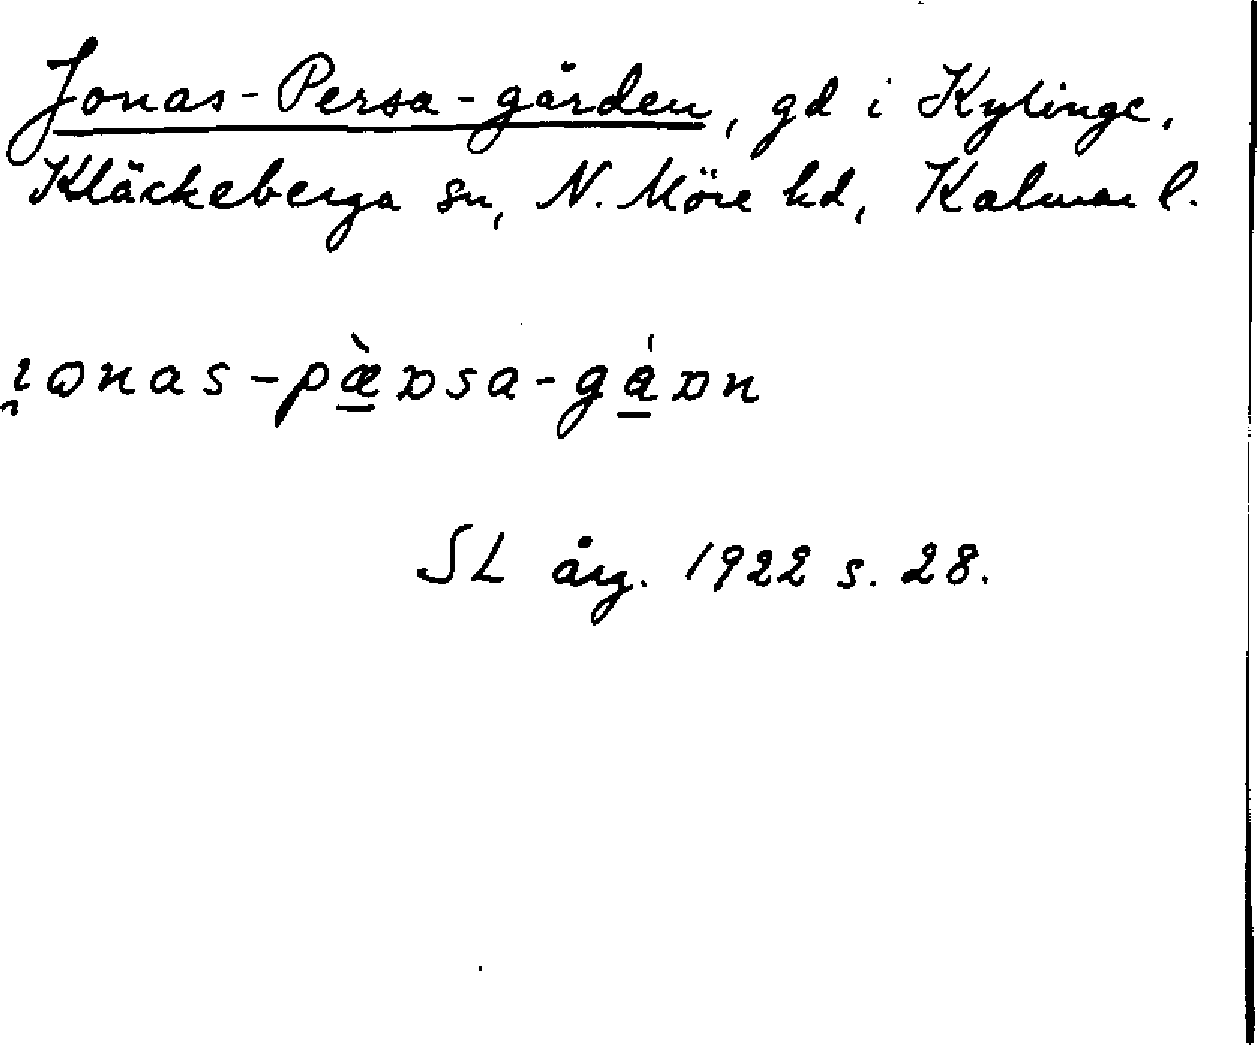 Jonas-Persa-gården, gd i Kylinge,
Kläckeberga sn, N. Möre hd, Kalmar l.
SL årg. 1922 s. 28.